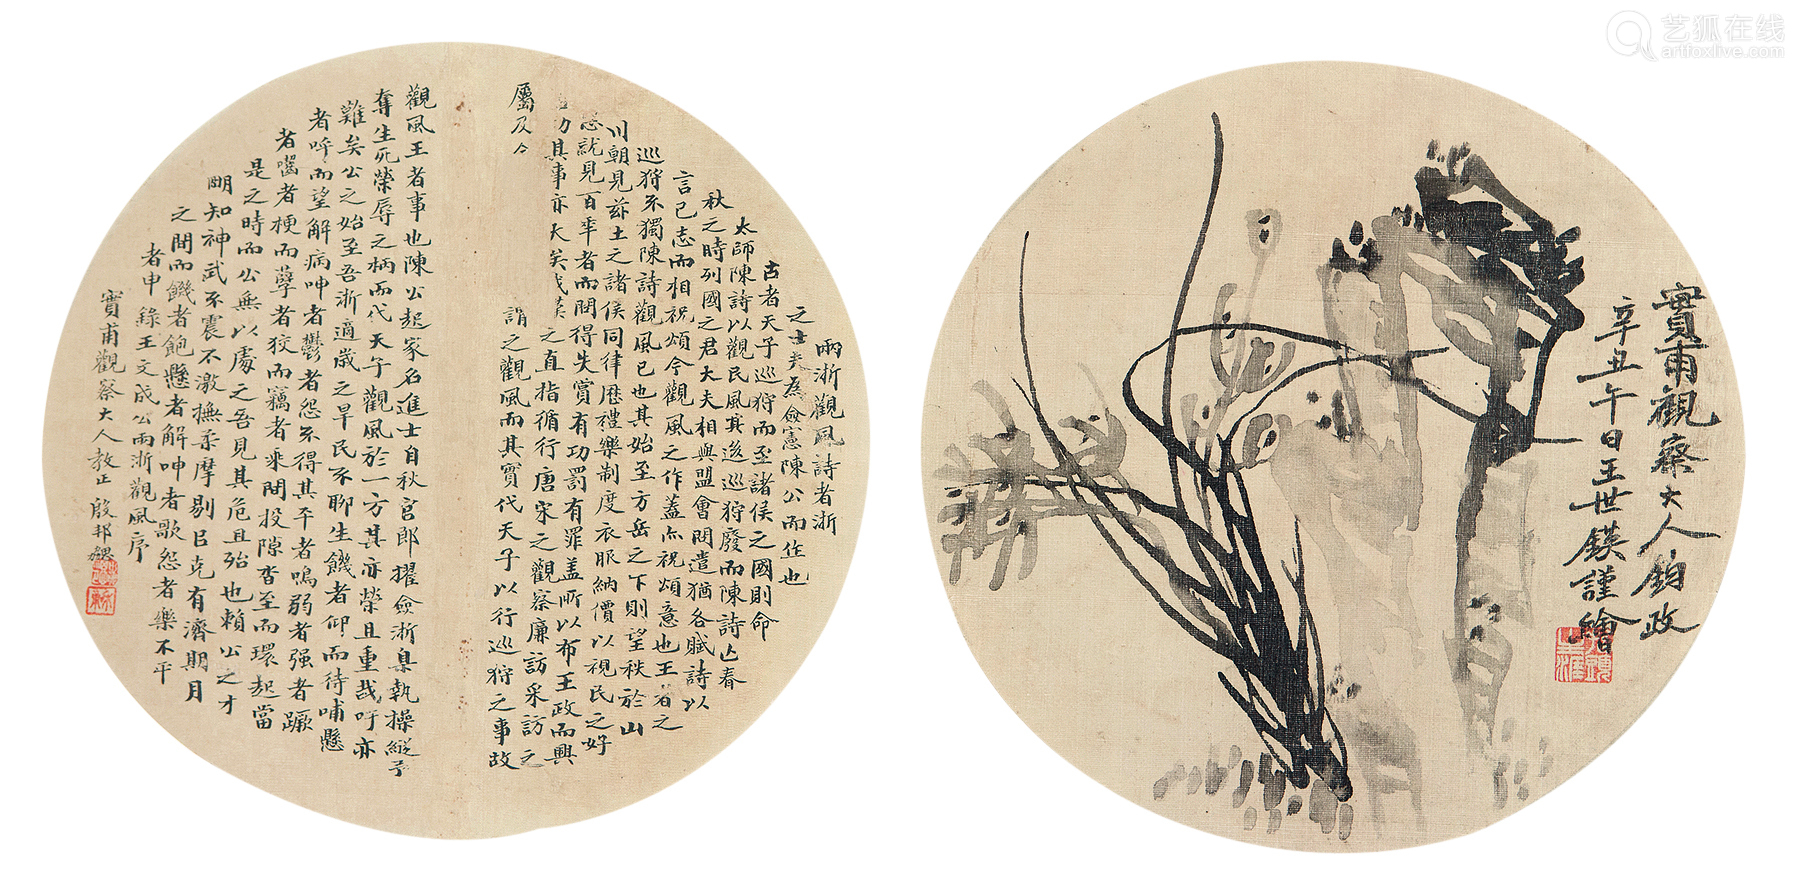 兩浙觀風詩者浙
之士夫為僉憲陳公而作也
古者天子巡狩而至諸侯之國則命
太師陳詩以觀民風其後巡狩廢而陳詩亡春
秋之時列國之君大夫相與盟會問遣猶各賦詩以
言己志而相祝頌今觀風之作蓋亦祝頌意也王者之
巡狩不獨陳詩觀風已也其始至方岳之下則望秩於山
川朝見茲土之諸侯同律厯禮樂制度衣服納價以視民之好
惡就見百年者而問得失賞有功罰有罪蓋所以布王政而興
功其事亦大矣哉漢之直指循行唐宋之觀察廉訪采訪之
屬及今 謂之觀風而其實代天子以行巡狩之事故
觀風王者事也陳公起家名進士自秋官郎擢僉浙臬執操縱予
奪生死榮辱之柄而代天子觀風於一方其亦榮且重哉吁亦
難矣公之始至吾浙適歲之旱民不聊生饑者仰而待哺懸
者呼而望解病呻者鬱者怨不得其平者鳴弱者强者蹶
者嚙者梗而孽者狡而竊者乘間投隙沓至而環起當
是之時而公無以處之吾見其危且殆也賴公之才
明知神武不震不激撫柔摩剔以克有濟期月
之間而饑者飽懸者解呻者歌怨者樂不平
者申 錄王文成公兩浙觀風序
實甫觀察大人教正 殷邦
實甫觀察大人鈞政
辛丑午日王世鍈謹繪
艺狐在线
artfoxlive.com